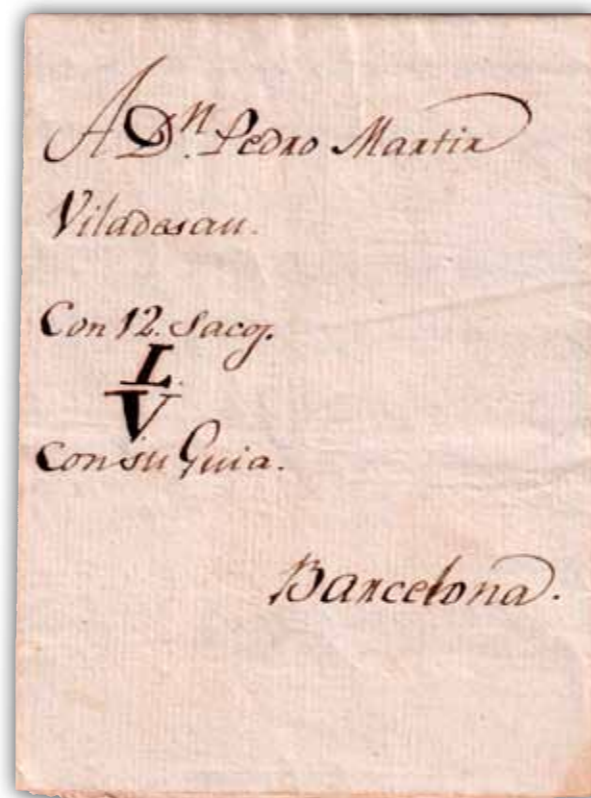 A Dn. Pedro Martin
Viladesau.
Con 12. Sacos.
L.
V
Con su Guia.
Barcelona.